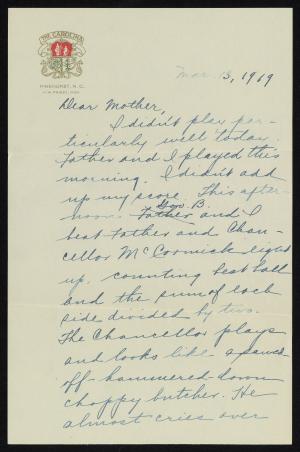 THE CAROLINA
PINEHURST, N.C.
Mar. 13, 1919
Dear Mother,
I didn't play par-
ticularly well today.
Father and I played this
morning. I didn't add
up my score. This after-
Geo. B.
noon Father and I
beat Father and Chan-
cellor McCormick eight
up, counting best ball
and the sum of each
side divided by two.
The Chancellor plays
and looks like a sawed
off-hammered-down
choppy butcher. He
almost cries over